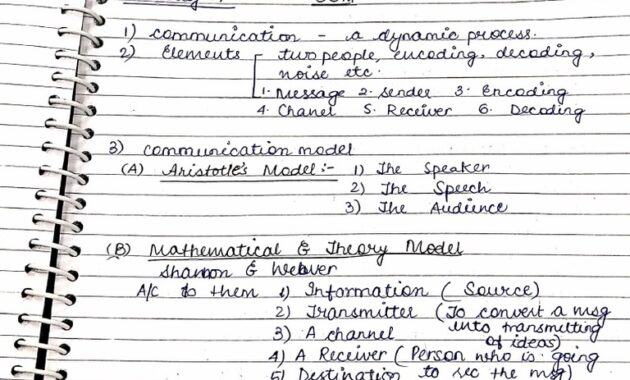 1) communication - a dynamic process.
2) Elements - two people, encoding, decoding,
noise etc.
1. Message 2. Sender 3. Encoding
4. Chanel 5. Receiver 6. Decoding
3) communication model
(A) Aristotle's Model :- 1) The Speaker
2) The Speech
3) The Audience
(B) Mathematical & Theory Model
Shannon & Webver
A/C to them 1) Information (Source)
2) Transmitter (To convert a msg
into transmitting
3) A channel of ideas)
4) A Receiver (Person who is going
5) Destination to rec the msg)